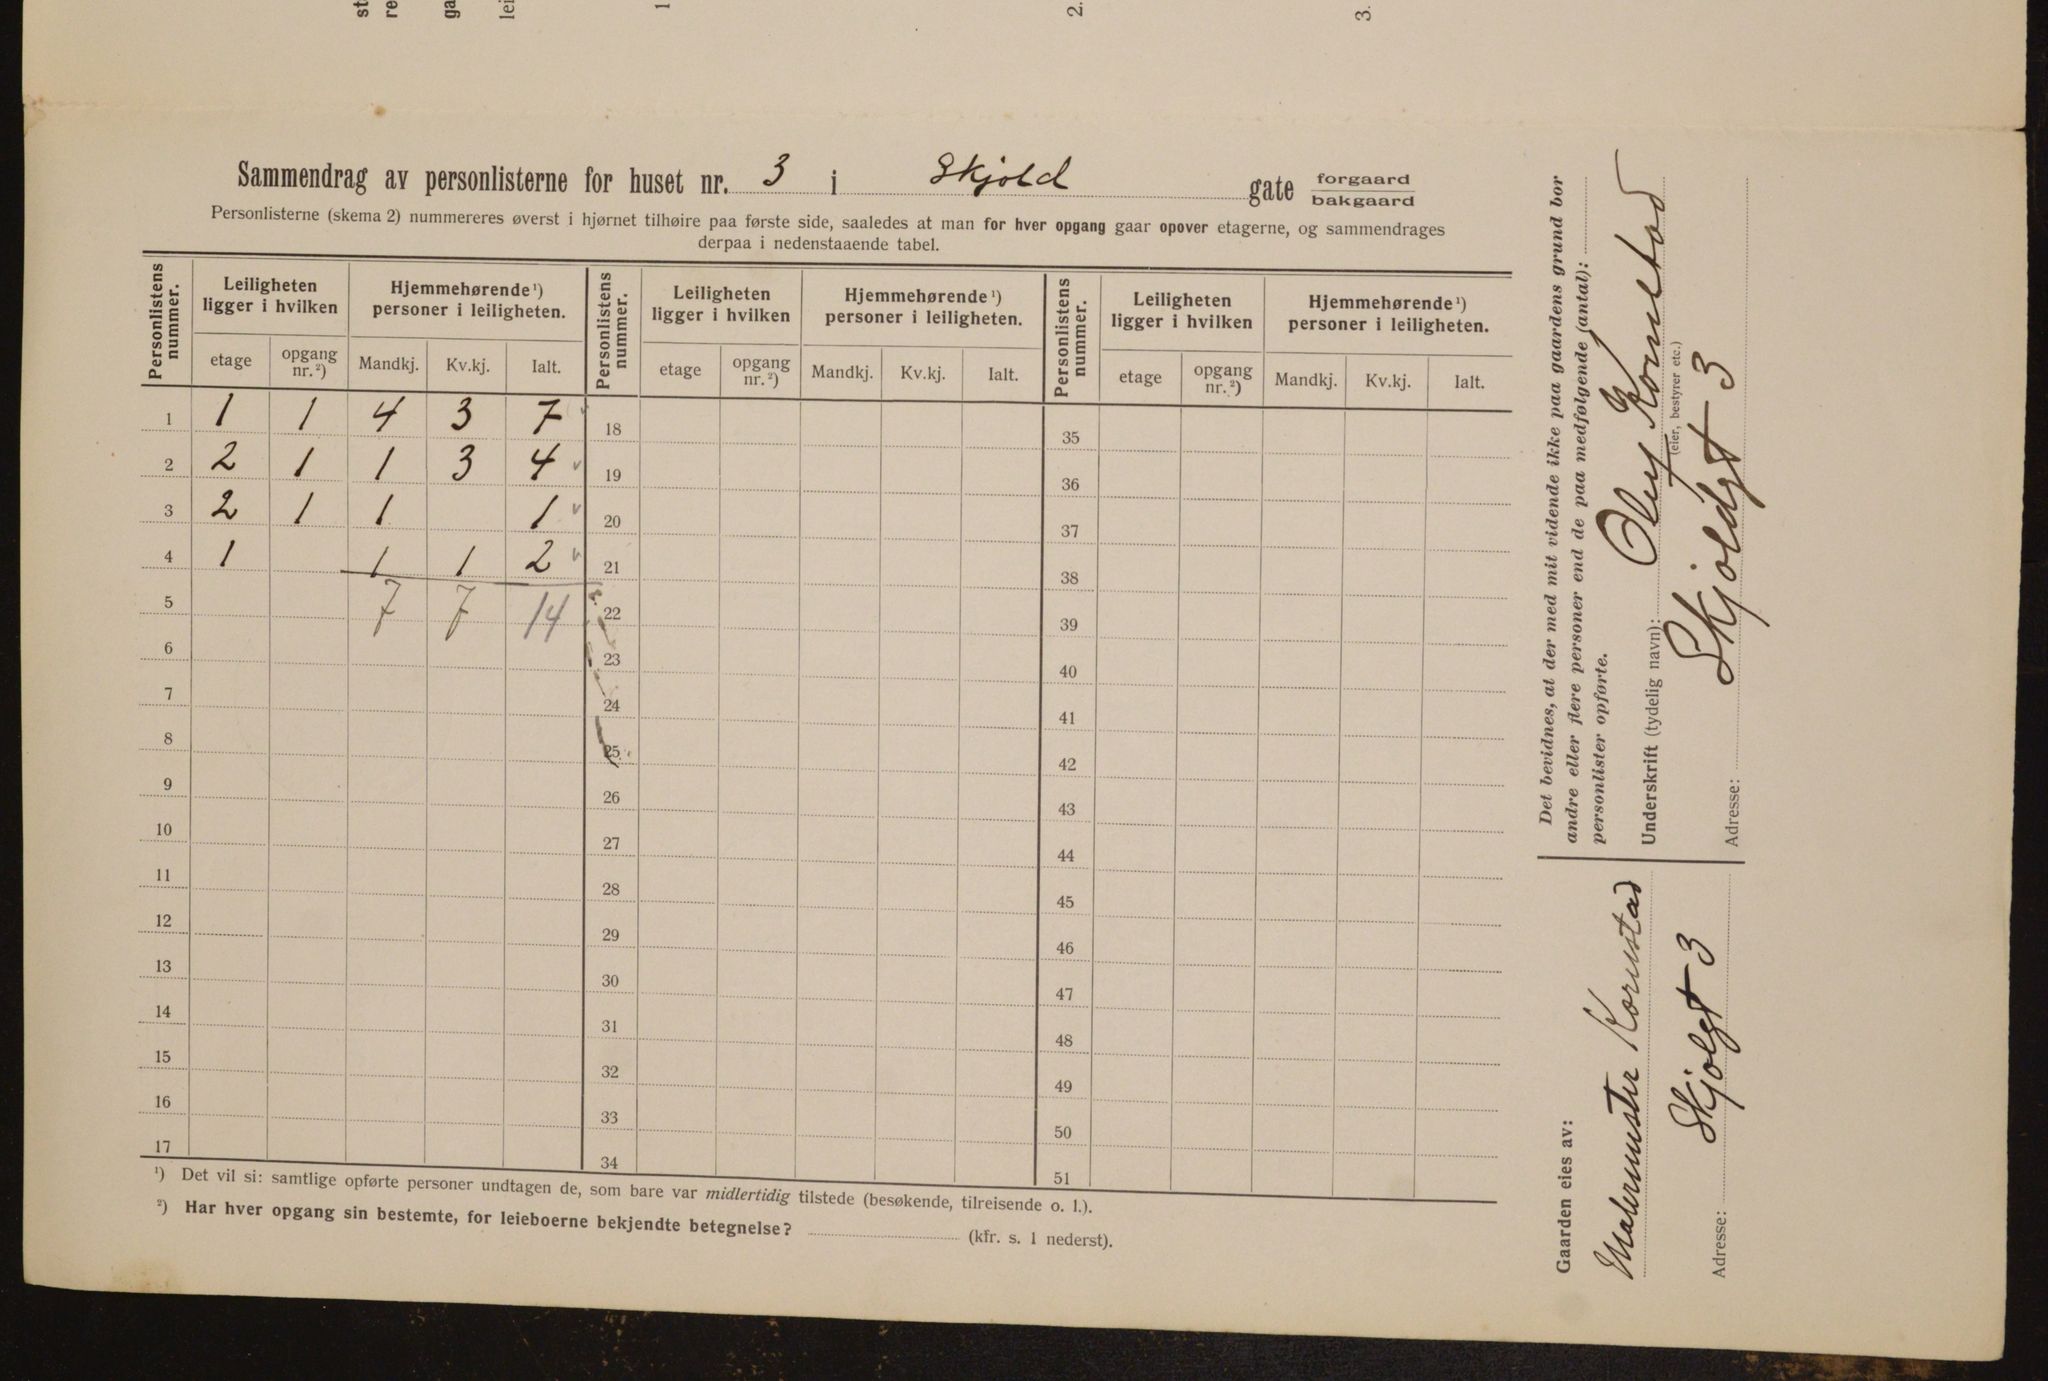 Sammendrag av personlisterne for huset nr. 3 i Skjold gate forgaard bakgaard
Personlisterne (skema 2) nummereres øverst i hjørnet tilhøire paa første side, saaledes at man for hver opgang gaar opover etagerne, og sammendrages
derpaa i nedenstaaende tabel.
Personlistens nummer. Leiligheten ligger i hvilken Hjemmehørende ¹) personer i leiligheten. Personlistens nummer. Leiligheten ligger i hvilken Hjemmehørende ¹) personer i leiligheten. Personlistens nummer. Leiligheten ligger i hvilken Hjemmehørende ¹) personer i leiligheten.
etage opgang nr. ²) Mandkj. Kv.kj. Ialt. etage opgang nr. ²) Mandkj. Kv.kj. Ialt. etage opgang nr. ²) Mandkj. Kv.kj. Ialt.
1 1 1 4 3 7 18 35
2 2 1 1 3 4 19 36
3 2 1 1 1 20 37
4 1 1 1 2 21 38
5 7 7 14 22 39
6 23 40
7 24 41
8 25 42
9 26 43
10 27 44
11 28 45
12 29 46
13 30 47
14 31 48
15 32 49
16 33 50
17 34 51
¹) Det vil si: samtlige opførte personer undtagen de, som bare var midlertidig tilstede (besøkende, tilreisende o. l.).
²) Har hver opgang sin bestemte, for leieboerne bekjendte betegnelse? (kfr. s. 1 nederst).
Det bevidnes, at der med mit vidende ikke paa gaardens grund bor
andre eller flere personer end de paa medfølgende (antal):
personlister opførte.
Underskrift (tydelig navn): Oluf Kornstad
(eier, bestyrer etc.)
Adresse: Skjoldgt 3
Gaarden eies av:
Malermester Kornstad
Adresse: Skjolgt 3
st
re
ga
lei
1
2.
3.